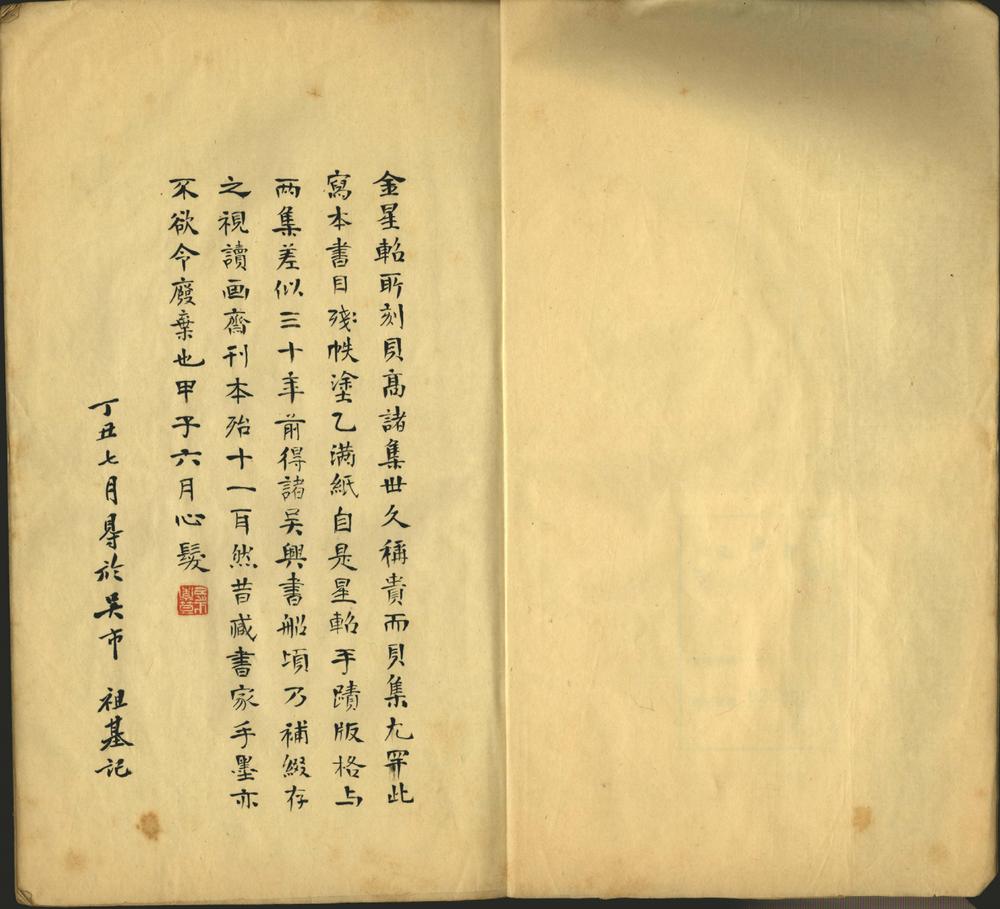 金星軺所刻貝髙諸集世久稱貴而貝集尤罕此
寫本書目殘帙塗乙滿紙自是星軺手蹟版格与
兩集差似三十年前得諸吴興書船頃乃補綴存
之視讀画齋刊本殆十一耳然昔藏書家手墨亦
不欲令廢棄也甲子六月心髮
丁丑七月㝵於吴市 祖基記